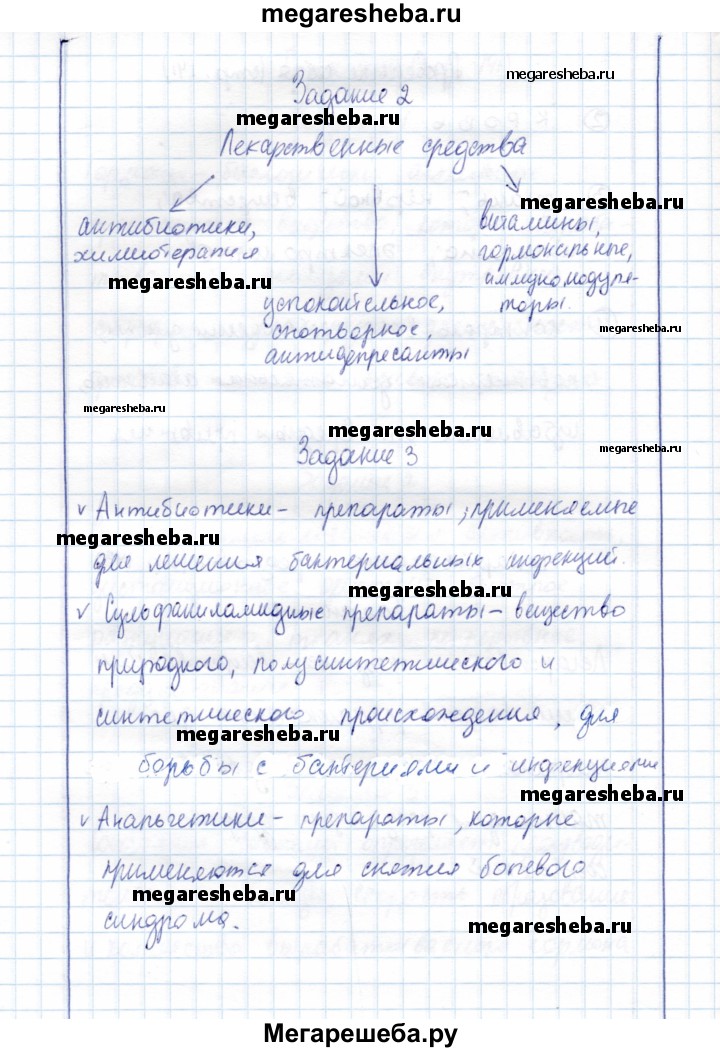 megaresheba.ru
megaresheba.ru
Задание 2
megaresheba.ru
Лекарственные средства
megaresheba.ru
антибиотики,
химиотерапия
витамины,
гормональные,
иммуномодуля-
торы.
megaresheba.ru
успокоительное,
снотворное,
антидепресанты
megaresheba.ru
megaresheba.ru
megaresheba.ru
Задание 3
megaresheba.ru
v Антибиотики - препараты, применяемые
megaresheba.ru
для лечения бактериальных инфекций.
megaresheba.ru
v Сульфаниламидные препараты - вещество
природного, полусинтетического и
синтетического происхождения, для
megaresheba.ru
борьбы с бактериями и инфекциями
megaresheba.ru
v Анальгетики - препараты, которые
применяются для снятия болевого
megaresheba.ru
синдрома.
megaresheba.ru
Мегарешеба.ру